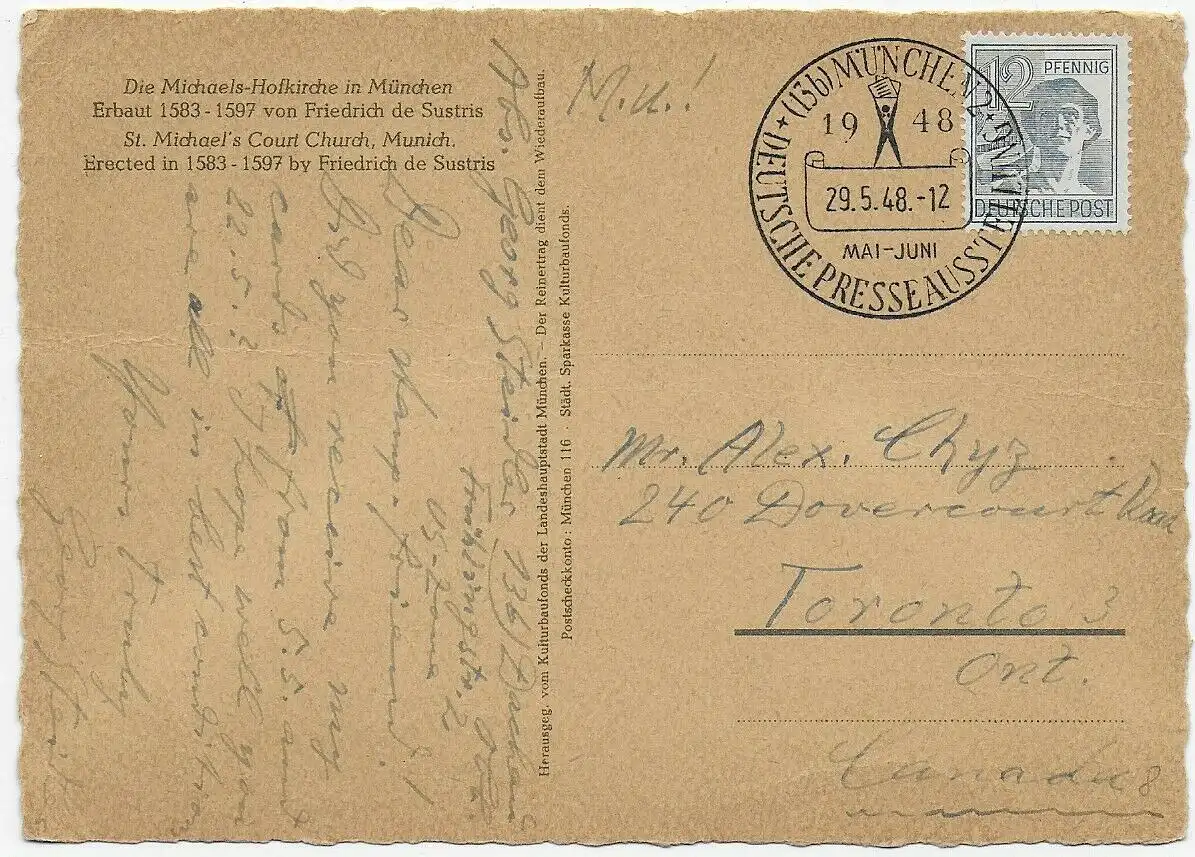 Die Michaels-Hofkirche in München
Erbaut 1583-1597 von Friedrich de Sustris
St. Michael's Court Church, Munich.
Erected in 1583-1597 by Friedrich de Sustris
Abs. Georg
13b)
Frühlingstr. 2
US-Zone
Dear stamp-friend!
Did you receive my
cards from 5.5. and
22.5.? I hope well you
are all in best condition
Yours truly
Georg
Herausgeg. vom Kulturbaufonds der Landeshauptstadt München. – Der Reinertrag dient dem Wiederaufbau.
Postscheckkonto: München 116 · Städt. Sparkasse Kulturbaufonds.
M.u.!
(13b) MÜNCHEN 2
DEUTSCHE PRESSEAUSSTELLUNG
1948
29.5.48.-12
MAI-JUNI
12 PFENNIG
DEUTSCHE POST
Mr. Alex. Chyz
240 Dovercourt Road
Toronto 3
Ont.
Canada